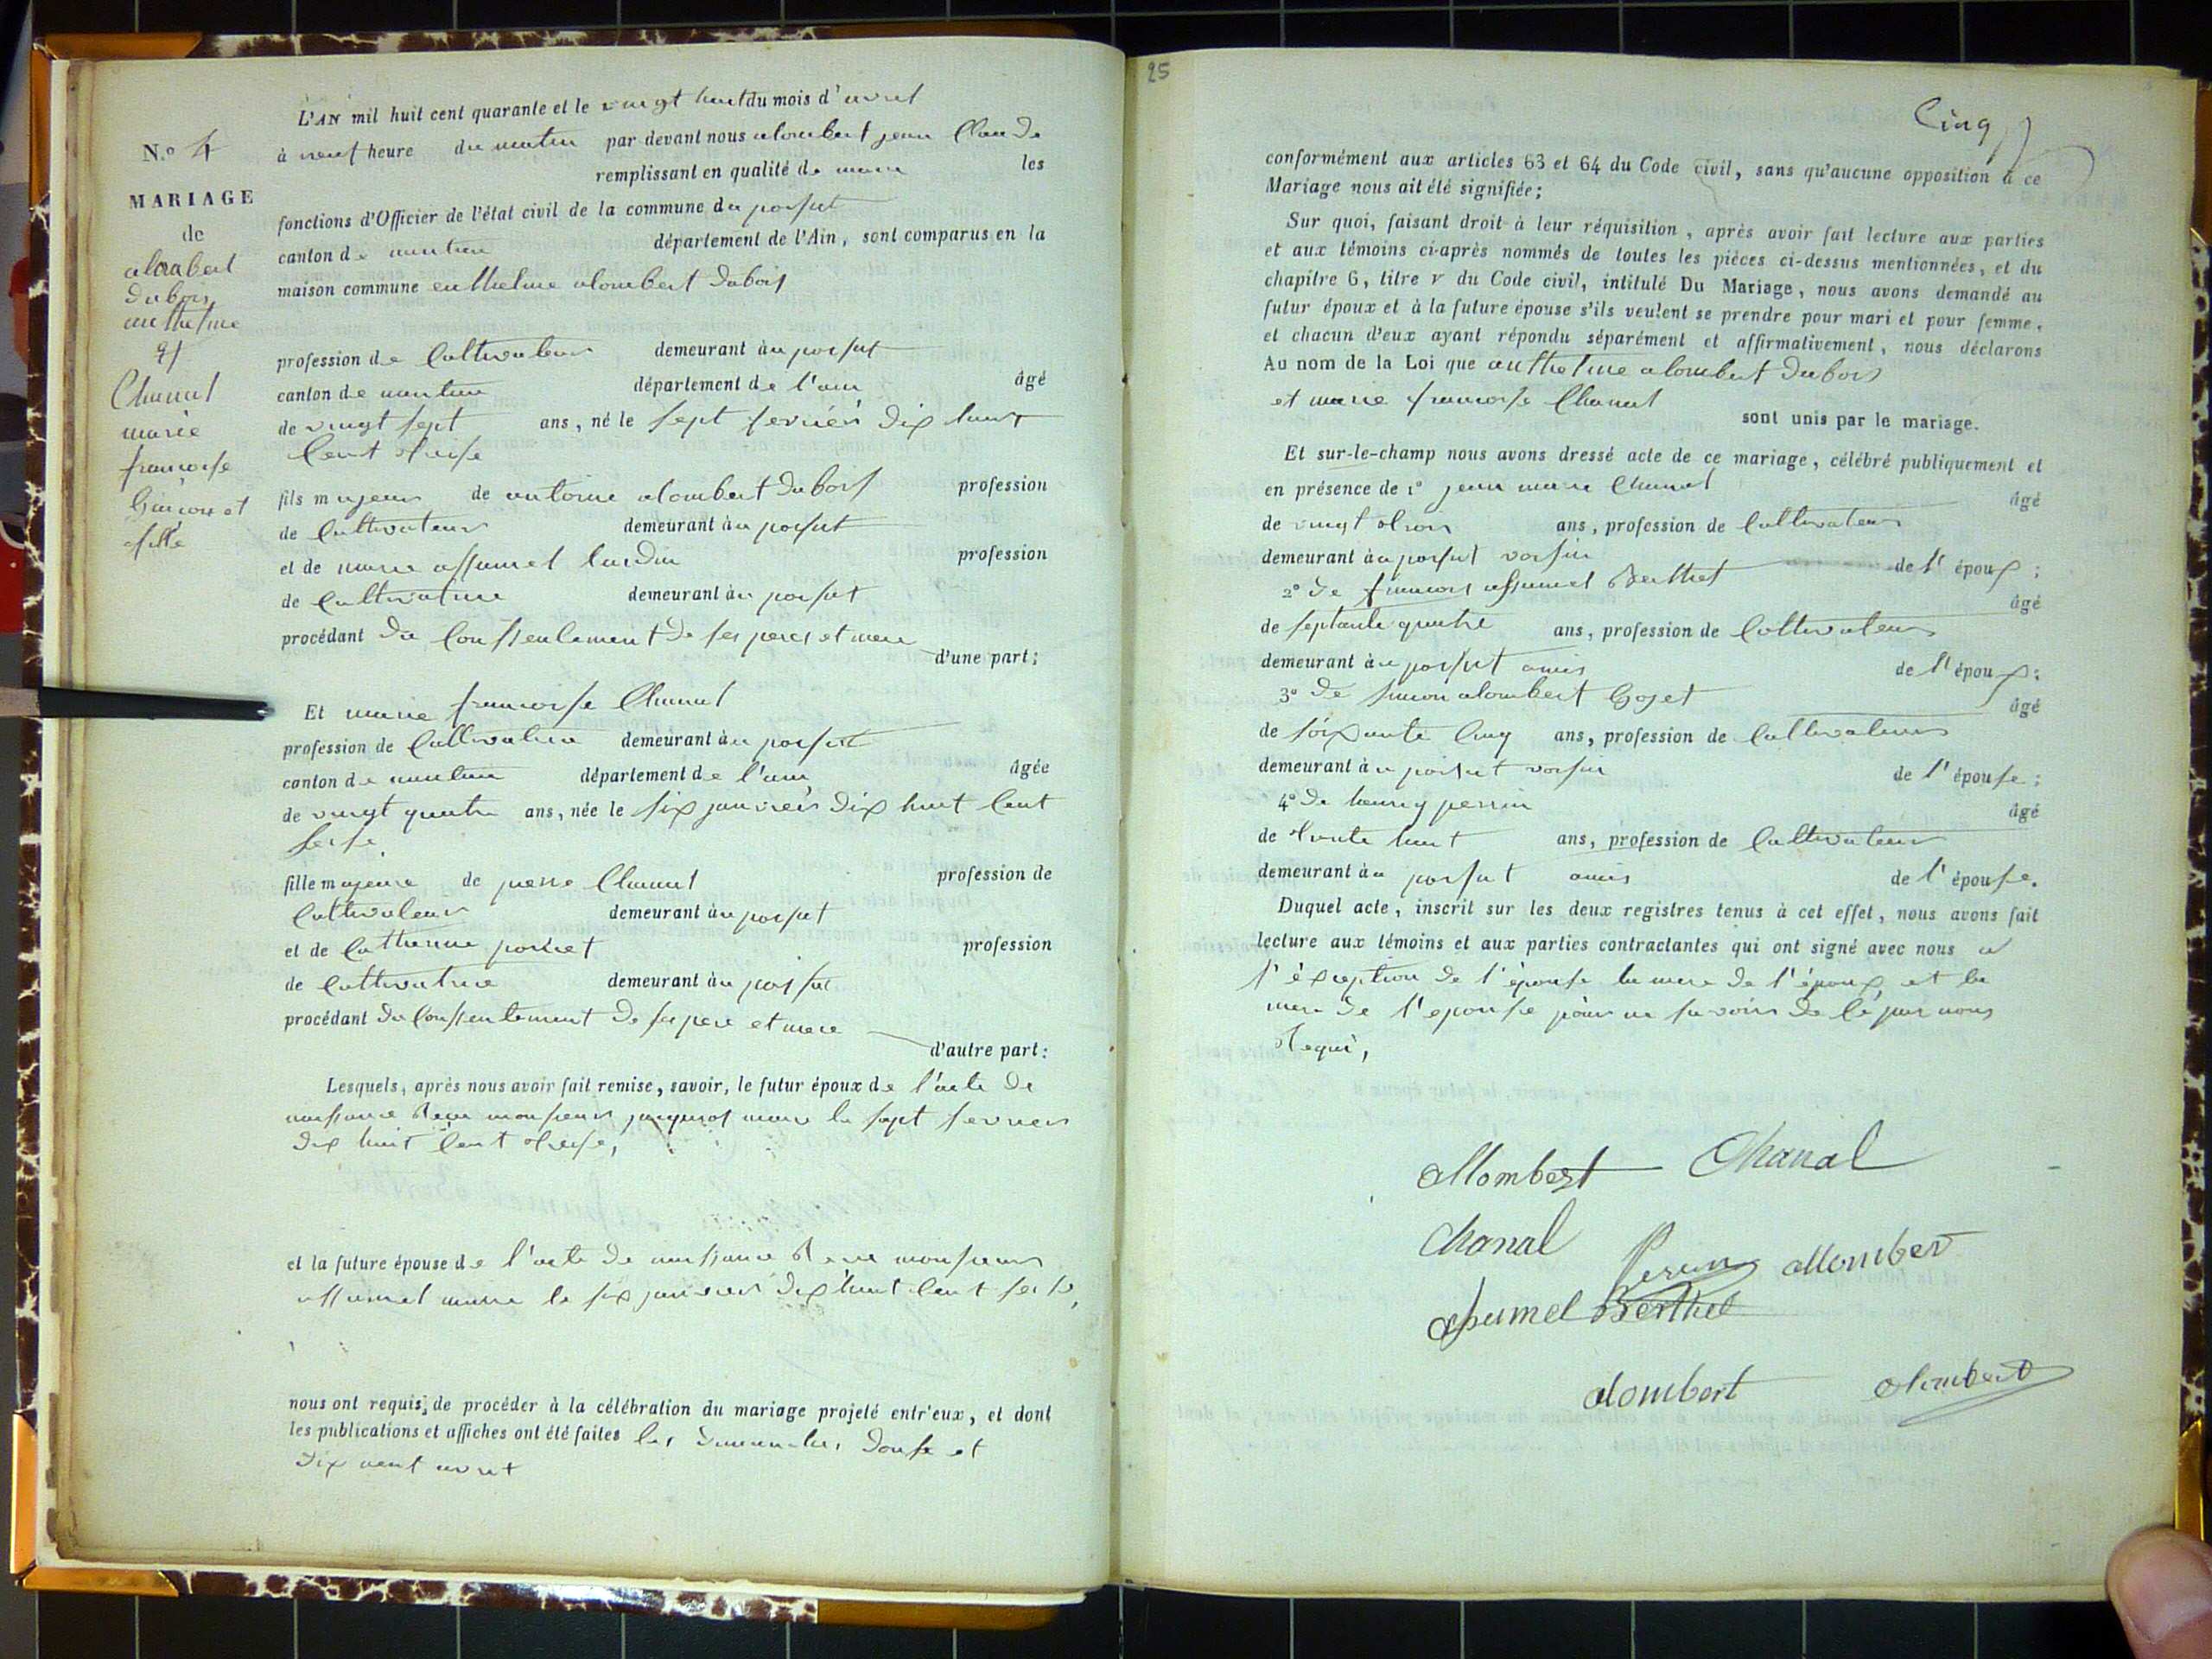 L'AN mil huit cent quarante et le vingt huit du mois d'avril
à neuf heure du matin par devant nous alombert jean Claude
remplissant en qualité de maire les
fonctions d'Officier de l'état civil de la commune du poisat
canton de nantua département de l'Ain, sont comparus en la
maison commune enthelme alombert dubois
profession de Cultivateur demeurant au poisat
canton de nantua département de l'ain âgé
de vingt sept ans, né le sept fevrier dix huit
Cent treise
fils majeur de antoine alombert dubois profession
de Cultivateur demeurant au poisat
et de marie assumel lurdin profession
de Cultivatrice demeurant au poisat
procédant du Conssentement de ses peres et mere
d'une part;
Et marie francoise Chanal
profession de Cultivatrice demeurant au poisat
canton de nantua département de l'ain âgée
de vingt quatre ans, née le six janvier dix huit Cent
seise
fille majeure de pierre Chanal profession de
Cultivateur demeurant au poisat
et de Catherine poncet profession
de Cultivatrice demeurant au poisat
procédant du Conssentement de ses pere et mere
d'autre part:
Lesquels, après nous avoir fait remise, savoir, le futur époux de l'acte de
naissance monsieur maire le sept fevrier
dix huit Cent treise,
et la future épouse de l'acte de naissance monsieur
assumel maire le six janvier dix huit Cent seise,
nous ont requis, de procéder à la célébration du mariage projeté entr'eux, et dont
les publications et affiches ont été faites les dimanches douse et
dix neuf avril
N.o 4
MARIAGE
de
alombert
dubois
anthelme
et
Chanal
marie
francoise
Garcon et
fille
25
Cinq
conformément aux articles 63 et 64 du Code civil, sans qu'aucune opposition à ce
Mariage nous ait été signifiée;
Sur quoi, faisant droit à leur réquisition, après avoir fait lecture aux parties
et aux témoins ci-après nommés de toutes les pièces ci-dessus mentionnées, et du
chapitre 6, titre v du Code civil, intitulé Du Mariage, nous avons demandé au
futur époux et à la future épouse s'ils veulent se prendre pour mari et pour femme,
et chacun d'eux ayant répondu séparément et affirmativement, nous déclarons
Au nom de la Loi que anthelme alombert dubois
et marie francoise Chanal
sont unis par le mariage.
Et sur-le-champ nous avons dressé acte de ce mariage, célébré publiquement et
en présence de 1° jean marie Chanal âgé
de vingt trois ans, profession de Cultivateur
demeurant au poisat voisin de l'époux;
2° de francois assumel Berthet âgé
de septante quatre ans, profession de Cultivateur
demeurant au poisat amis de l'époux;
3° de simon alombert Goget âgé
de soixante Cinq ans, profession de Cultivateur
demeurant au poisat voisin de l'épouse;
4° de henry perrin âgé
de trente huit ans, profession de Cultivateur
demeurant au poisat amis de l'épouse.
Duquel acte, inscrit sur les deux registres tenus à cet effet, nous avons fait
lecture aux témoins et aux parties contractantes qui ont signé avec nous a
l'éxception de l'épouse la mere de l'époux et la
mere de l'epouse pour ne savoir de Ce par nous
requi,
Alombert Chanal
Chanal Perin Alomber
assumel Berthet
alombert alombert